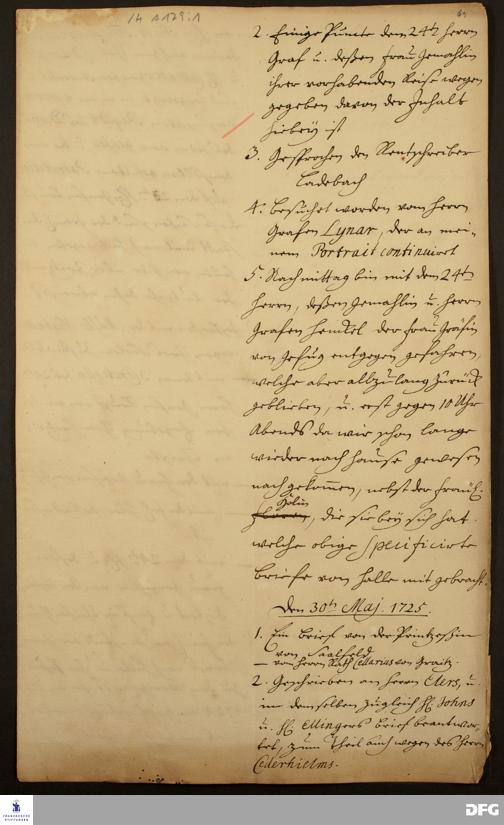 2. Einige Puncte dem 24th Herrn
Graf u. deßen Frau Gemahlin
ihrer vorhabenden Reise wegen
gegeben davon der Inhalt
hiebey ist
3. Gesprochen den Rentschreiber
Ladebach
4. Besuchet worden vom Herrn
Grafen Lynar, der an mei-
nem Portrait continuiret
5. Nachmittag bin mit dem 24th
Herrn, deßen Gemahlin u. Herrn
Grafen Henkel der Frau Gräfin
von entgegen gefahren,
welche aber allzulang zurück
geblieben, u. erst gegen 10 Uhr
Abends da wir schon lange
wieder nach Hause gewesen
nachgekommen, nebst der Fräul.
die sie bey sich hat.
welche obige Specificirte
Briefe von Halle mit gebracht.
Den 30th Maj. 1725.
1. Ein Brief von der Printzeßin
von Saalfeld
— von Herrn Rath Cellarius von Graitz.
2. Geschrieben an Herrn Elers, u.
in demselben zugleich H. Johns
u. H. Ellingers Brief beantwor-
tet, zum Theil auch wegen des Herrn
Cederhielms.
FRANCKESCHE STIFTUNGEN
DFG